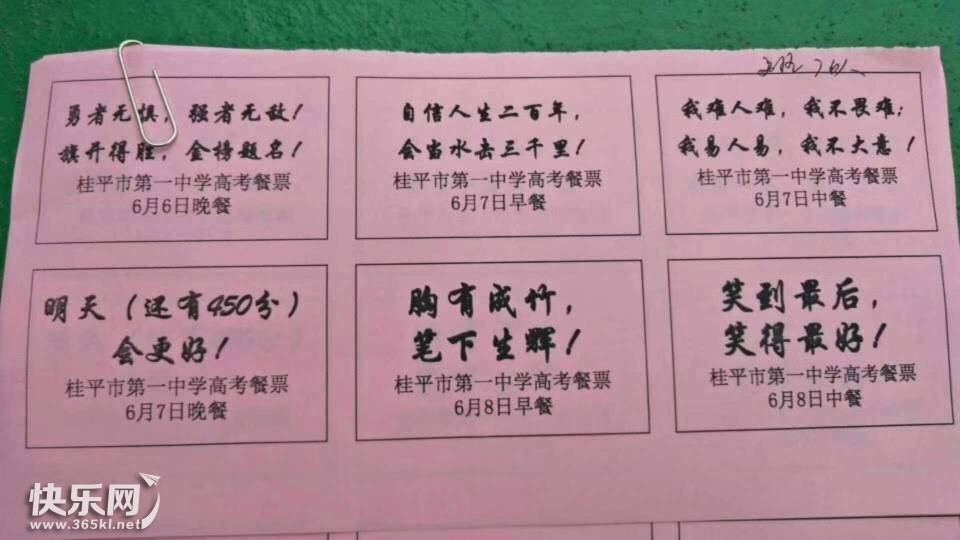 勇者无惧，强者无敌！
旗开得胜，金榜题名！
桂平市第一中学高考餐票
6月6日晚餐
自信人生二百年，
会当水击三千里！
桂平市第一中学高考餐票
6月7日早餐
我难人难，我不畏难；
我易人易，我不大意！
桂平市第一中学高考餐票
6月7日中餐
明天（还有450分）
会更好！
桂平市第一中学高考餐票
6月7日晚餐
胸有成竹，
笔下生辉！
桂平市第一中学高考餐票
6月8日早餐
笑到最后，
笑得最好！
桂平市第一中学高考餐票
6月8日中餐
快乐网
www.365kl.net